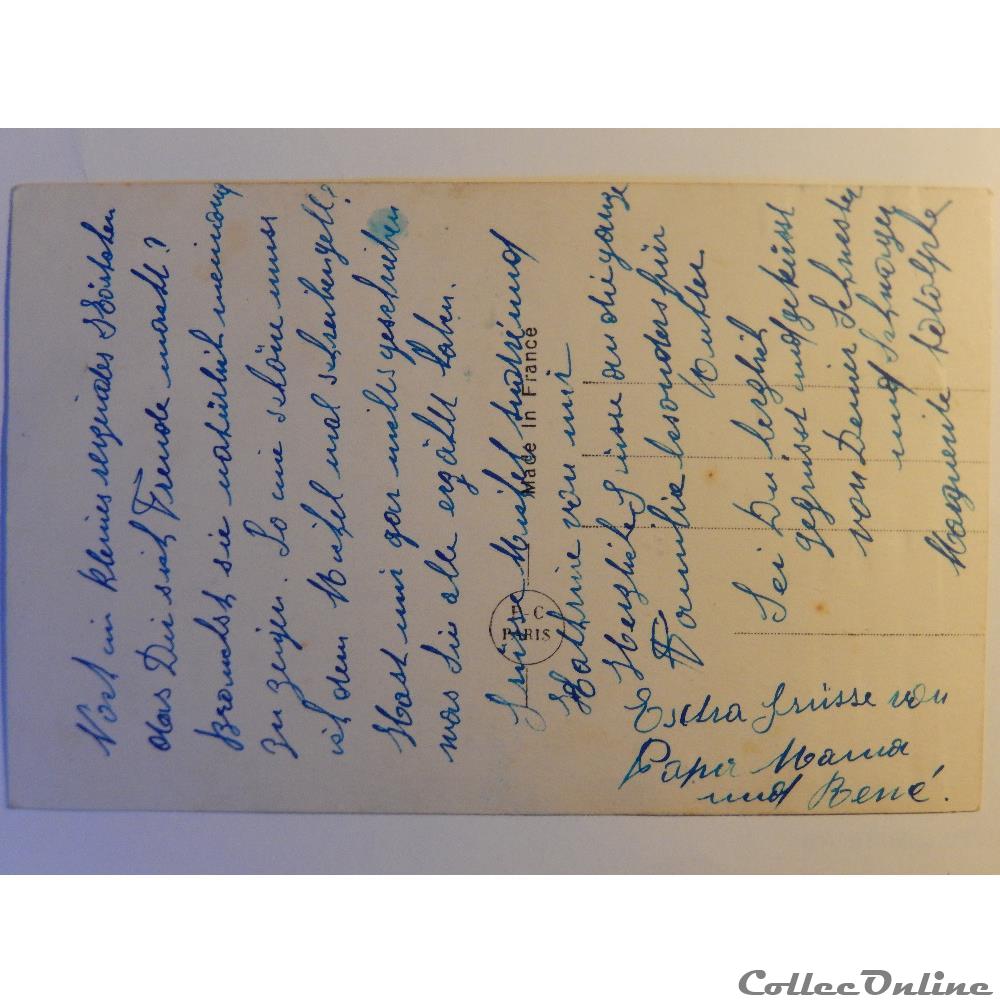 Noch ein kleines Kärtchen
das Dir sich Freude macht?
Brauchst sie natürlich niemand
zu zeigen. So wie schön muss
ich dem Michel mal schreiben gell?
Hast mir gar nichts geschrieben
was Sie alle erzählt haben.
Grüsse Michel und
Kathrine von mir
Herzliche Grüsse an die ganze
Familie besonders für
Sei Du herzlich
gegrüsst und geküsst
von Deiner Schwester
und Schwager
Marguerite &
Extra Grüsse von
Papa Mama
und René.
Made in France
P-C
PARIS
CollecOnline